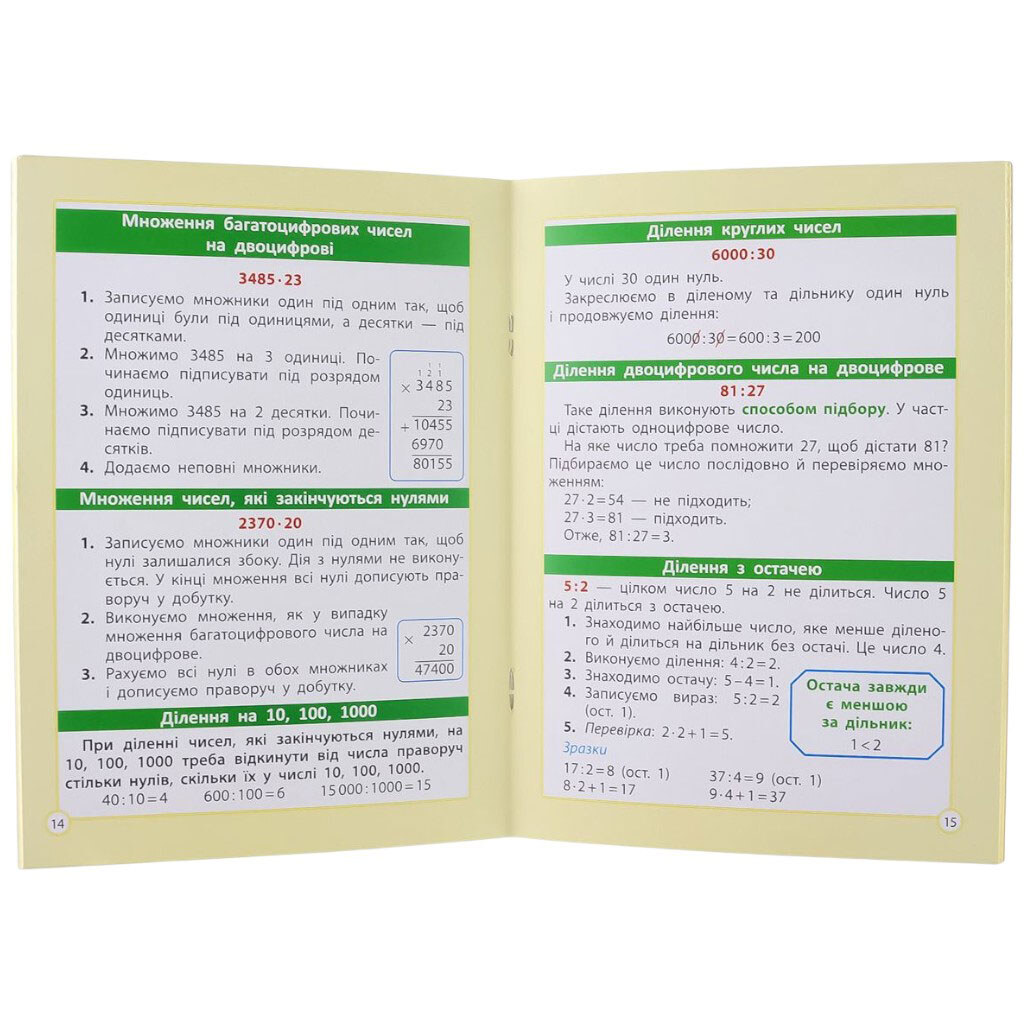 Множення багатоцифрових чисел
на двоцифрові
3485·23
1. Записуємо множники один під одним так, щоб
одиниці були під одиницями, а десятки — під
десятками.
2. Множимо 3485 на 3 одиниці. По-
чинаємо підписувати під розрядом
одиниць.
3. Множимо 3485 на 2 десятки. Почи-
наємо підписувати під розрядом де-
сятків.
4. Додаємо неповні множники.
1
1 2 1
× 3485
23
+ 10455
6970
80155
Множення чисел, які закінчуються нулями
2370·20
1. Записуємо множники один під одним так, щоб
нулі залишалися збоку. Дія з нулями не викону-
ється. У кінці множення всі нулі дописують пра-
воруч у добутку.
2. Виконуємо множення, як у випадку
множення багатоцифрового числа на
двоцифрове.
3. Рахуємо всі нулі в обох множниках
і дописуємо праворуч у добутку.
× 2370
20
47400
Ділення на 10, 100, 1000
При діленні чисел, які закінчуються нулями, на
10, 100, 1000 треба відкинути від числа праворуч
стільки нулів, скільки їх у числі 10, 100, 1000.
40:10=4 600:100=6 15000:1000=15
14
Ділення круглих чисел
6000:30
У числі 30 один нуль.
Закреслюємо в діленому та дільнику один нуль
і продовжуємо ділення:
6000:30=600:3=200
Ділення двоцифрового числа на двоцифрове
81:27
Таке ділення виконують способом підбору. У част-
ці дістають одноцифрове число.
На яке число треба помножити 27, щоб дістати 81?
Підбираємо це число послідовно й перевіряємо мно-
женням:
27·2=54 — не підходить;
27·3=81 — підходить.
Отже, 81:27=3.
Ділення з остачею
5:2 — цілком число 5 на 2 не ділиться. Число 5
на 2 ділиться з остачею.
1. Знаходимо найбільше число, яке менше ділено-
го й ділиться на дільник без остачі. Це число 4.
2. Виконуємо ділення: 4:2=2.
3. Знаходимо остачу: 5–4=1.
4. Записуємо вираз: 5:2=2
(ост. 1).
5. Перевірка: 2·2+1=5.
Остача завжди
є меншою
за дільник:
1<2
Зразки
17:2=8 (ост. 1) 37:4=9 (ост. 1)
8·2+1=17 9·4+1=37
15